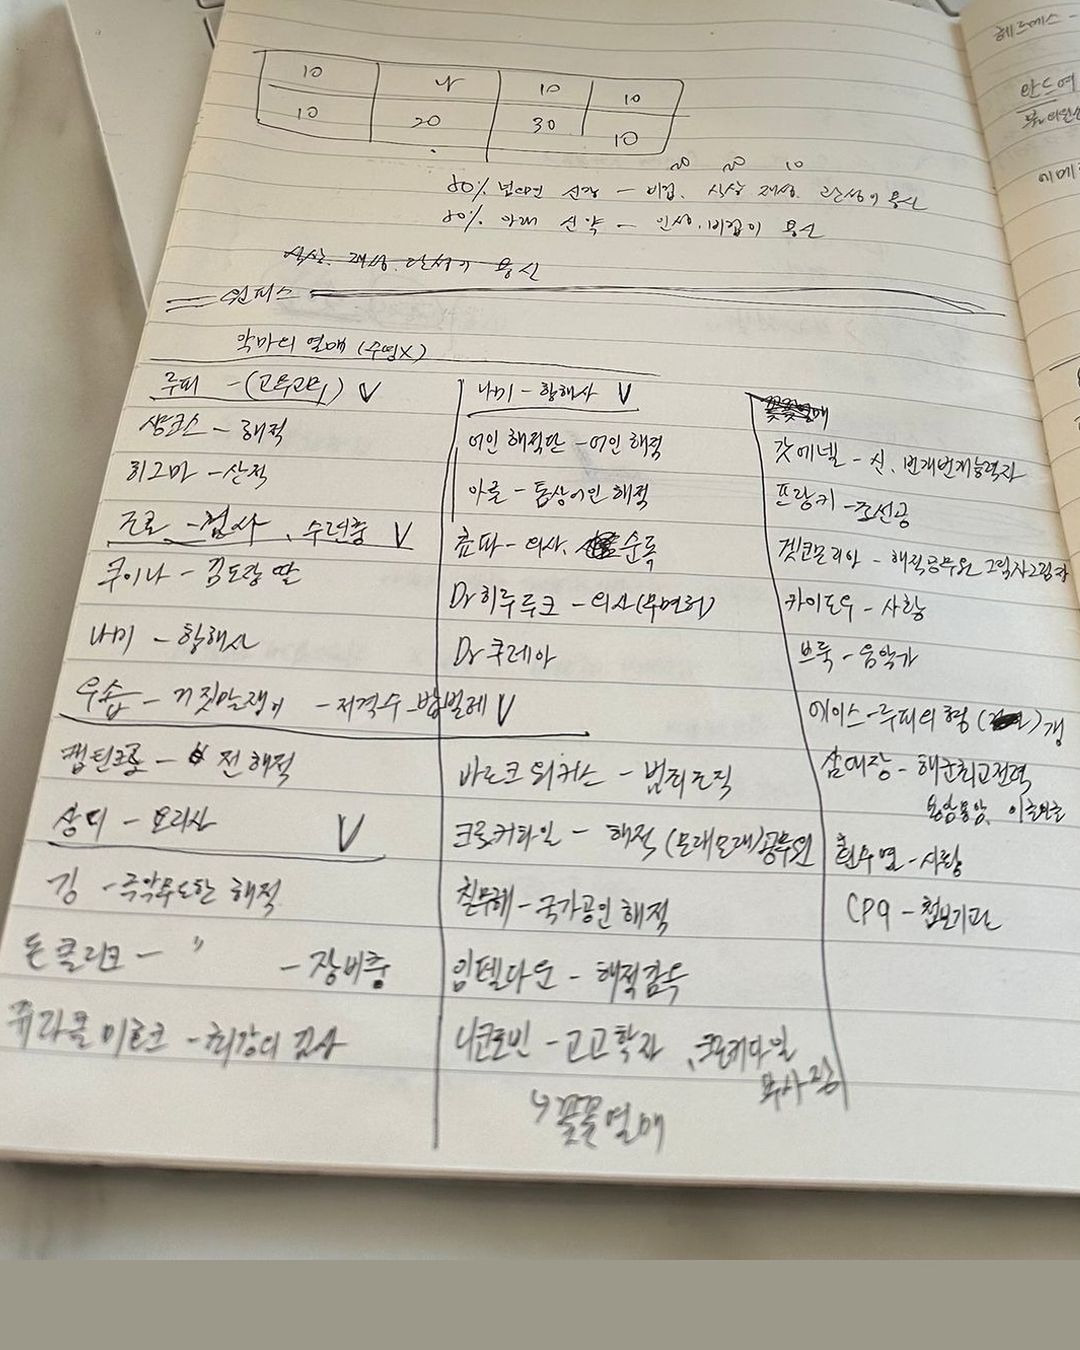 10 나 10 10
10 20 30 10
20 20 10
80% 넘으면 신강 - 비겁, 식상, 재성, 관성이 용신
80% 아래 신약 - 인성, 비겁이 용신
식상, 재성, 관성이 용신
원피스
악마의 열매 (수영X)
루피 - (고무고무) V
샹크스 - 해적
히그마 - 산적
조로 - 검사, 수련충 V
쿠이나 - 검도장 딸
나미 - 항해사
우솝 - 거짓말쟁이 - 저격수 V
캡틴크로 - 전 해적
상디 - 요리사 V
깅 - 극악무도한 해적
돈 클리크 - " - 장비충
쥬라클 미호크 - 최강의 검사
나미 - 항해사 V
어인 해적단 - 어인 해적
아론 - 톱상어인 해적
쵸파 - 의사, 순록
Dr 히루루크 - 의사 (무면허)
Dr 쿠레아
바로크 워커스 - 범죄조직
크로커다일 - 해적 (모래모래) 공무원
칠무해 - 국가공인 해적
임펠다운 - 해적감옥
니코로빈 - 고고학자, 크로커다일
부사장
↳ 꽃꽃열매
꽃꽃열매
갓에넬 - 신, 번개번개능력자
프랑키 - 조선공
겟코모리아 - 해적공무원 그림자그림자
카이도우 - 사황
브룩 - 음악가
에이스 - 루피의 형
삼대장 - 해군최고전력
흰수염 - 사황
CP9 - 첩보기관
헤르메스 -